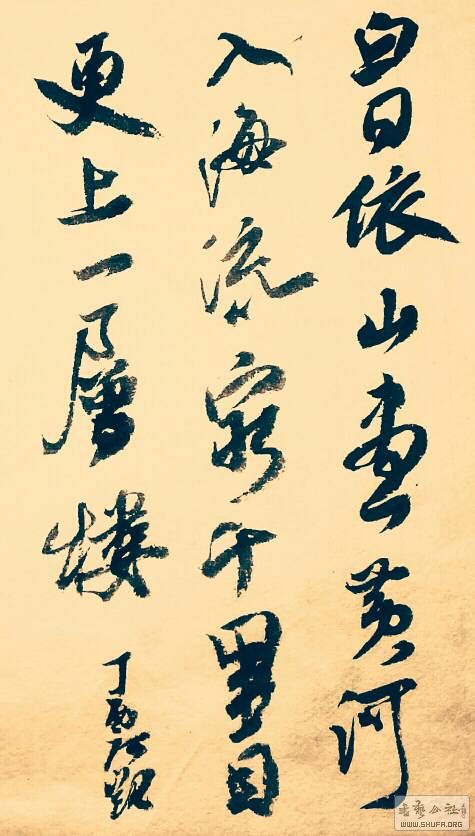 白日依山盡黄河
入海流窮千里目
更上一層樓
丁酉
書藝公社
WWW.SHUFA.ORG